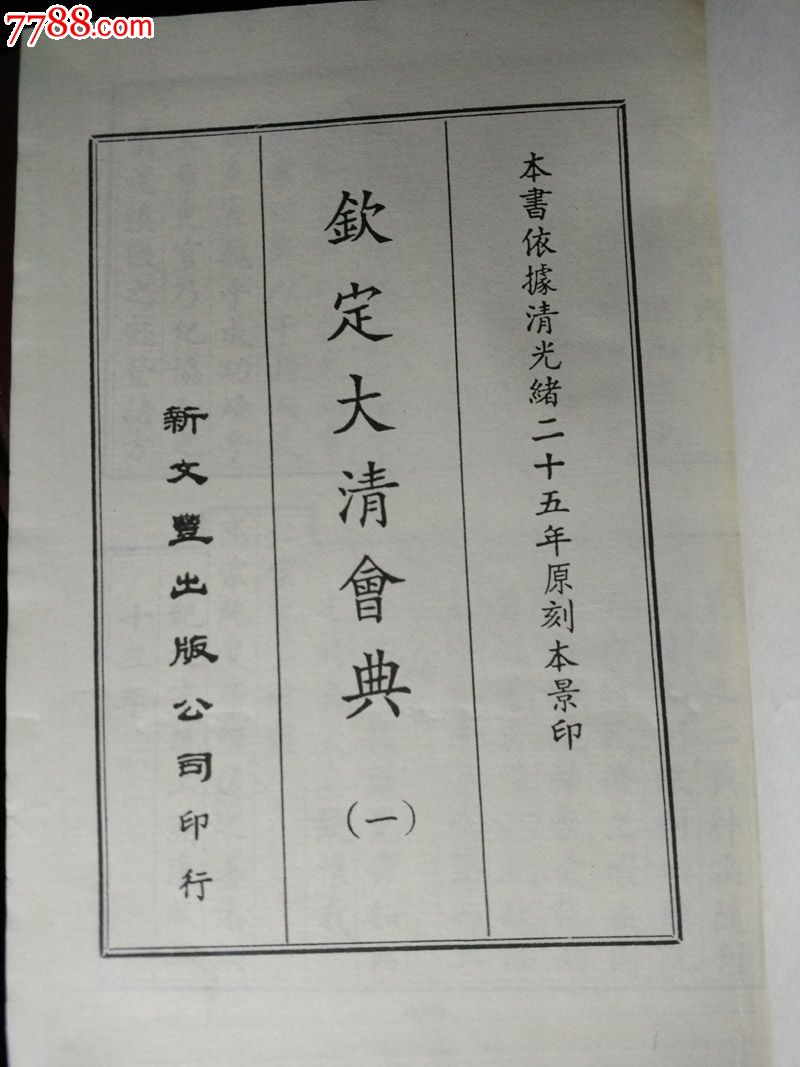 7788.com
本書依據清光緒二十五年原刻本景印
欽定大清會典
(一)
新文豐出版公司印行